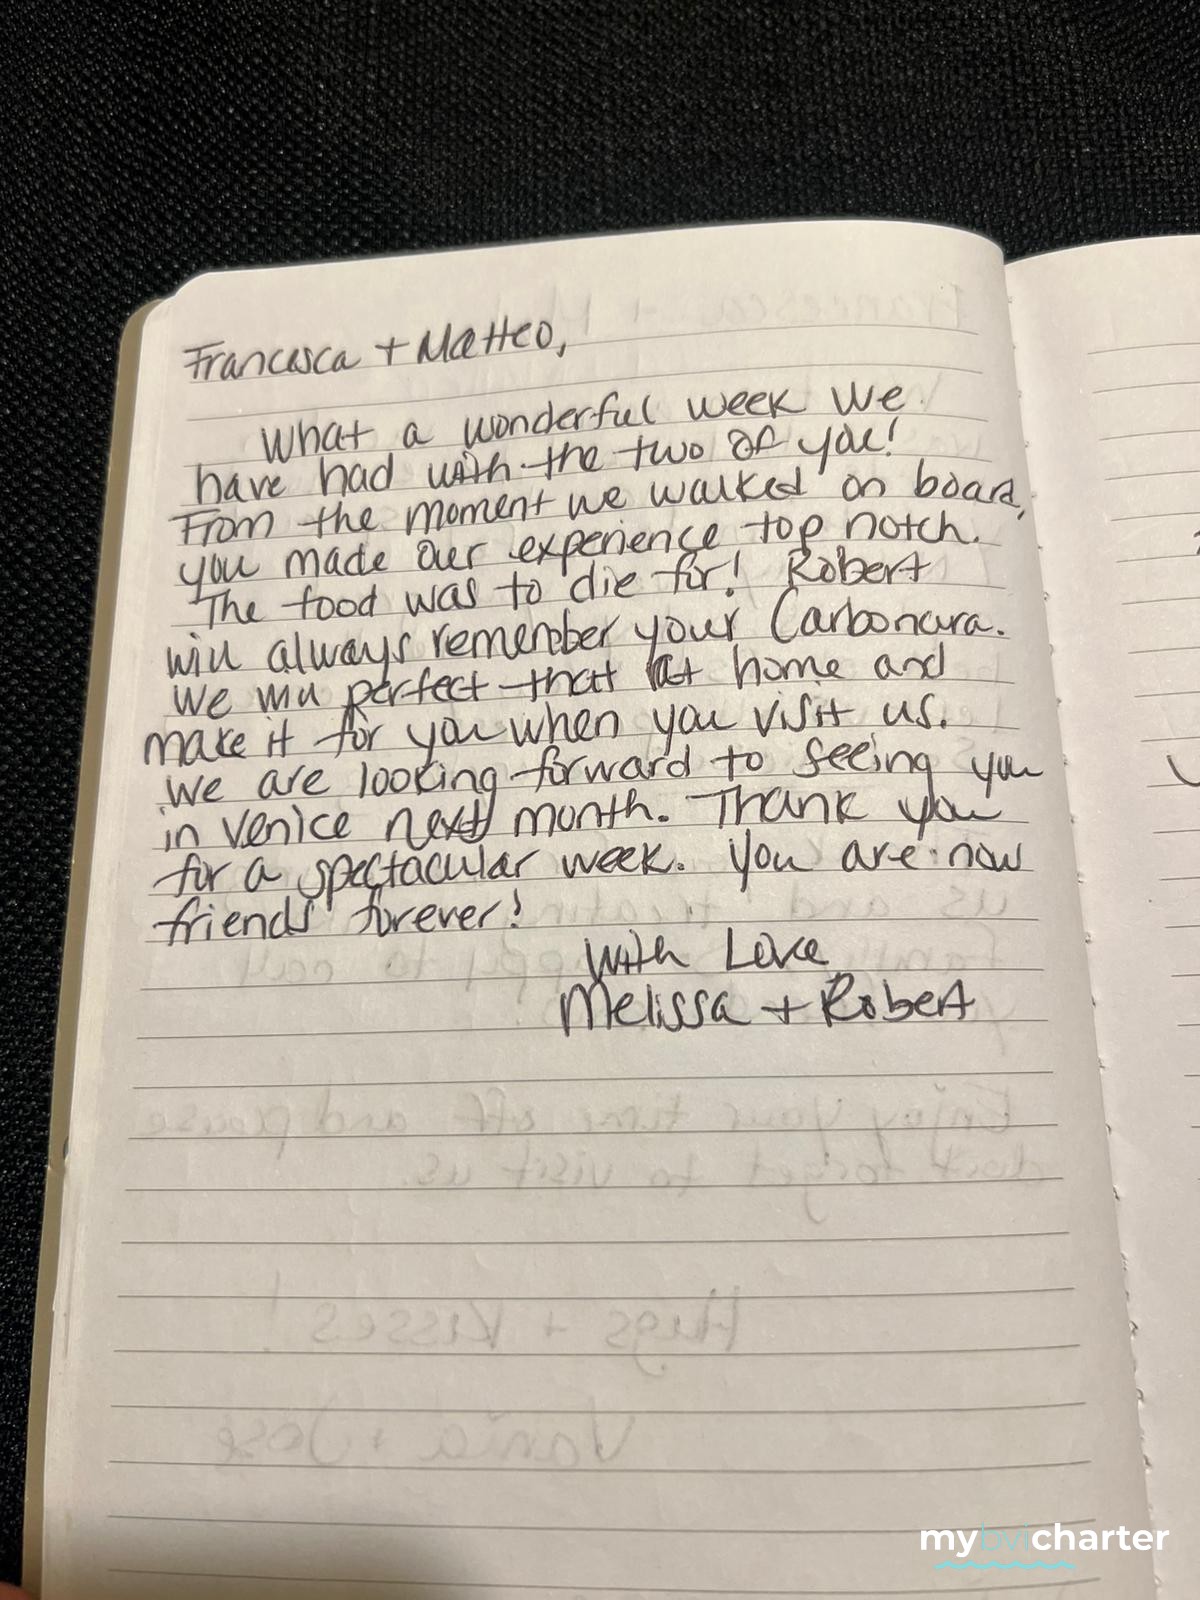 Francesca + Matteo,
What a wonderful week we
have had with the two of you!
From the moment we walked on board,
you made our experience top notch.
The food was to die for! Robert
will always remember your Carbonara.
We will perfect that at home and
make it for you when you visit us.
We are looking forward to seeing you
in Venice next month. Thank you
for a spectacular week. You are now
friends forever!
With Love
Melissa + Robert
Enjoy your time off and please
don't forget to visit us.
Hugs + Kisses!
Vania + Jose
mybvicharter